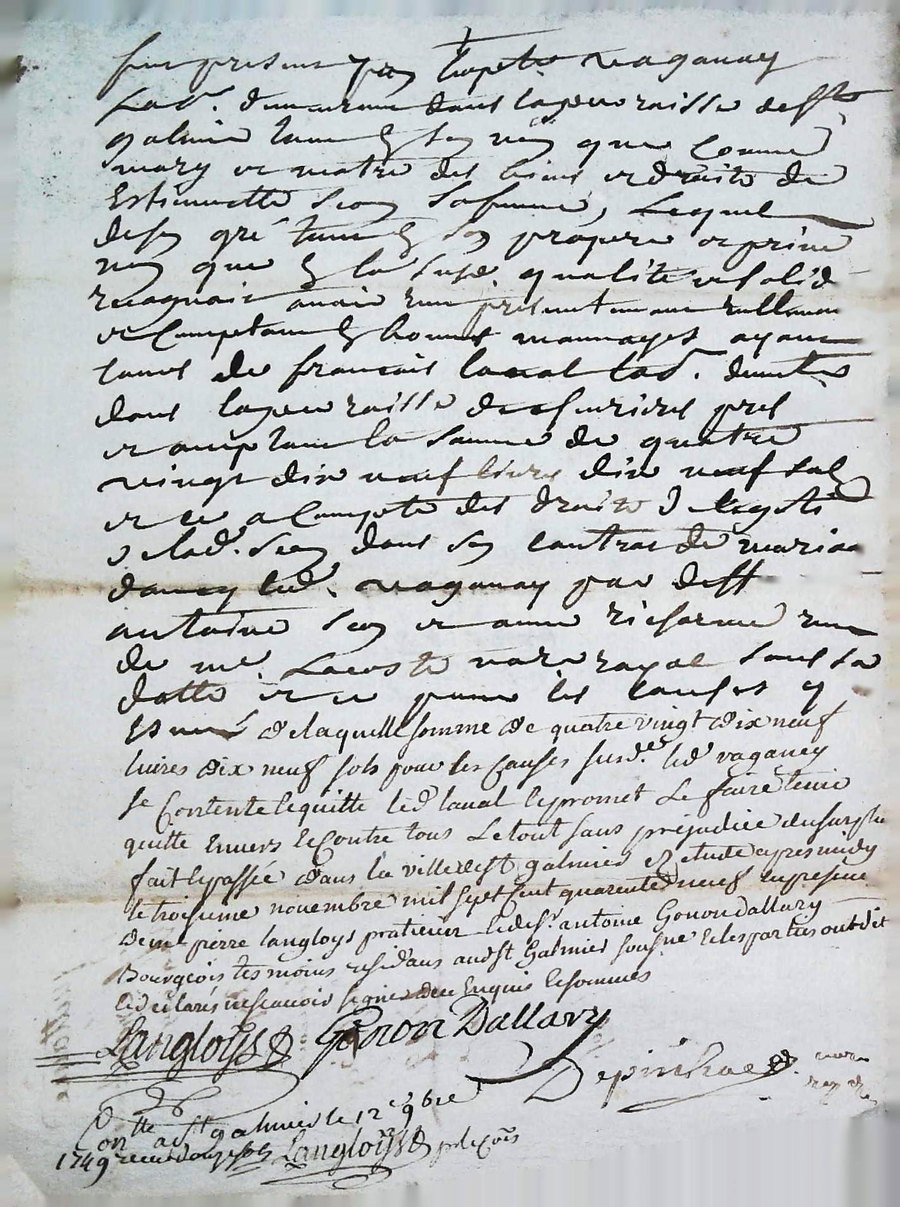 fut presant jean bapte. vaganay
Labr. demeurant dans la parroisse de St
galmier tant en son nom que comme
mary et maitre des biens et droits de
Estiennette sa femme, Lequel
de son gré tant en son propre et privé
nom que en la susd. qualité et solid.
recognoit avoir receu presentement reellement
et comptant en bonnes monnoyes ayant
cours de francois laval labr. demt.
dans la parroisse de pres
et acceptant la somme de quatre
vingt dix neuf livres dix neuf sols
et ce a Compte des droits
de lad. dans son contrat de mariage
avec led. vaganay par deff
antoine et anne receu
de me. Lacoste notre royal sous sa
datte et ce pour les causes y
de laquelle somme de quatre vingt dix neuf
livres dix neuf sols pour les Causes susd.es led vaganay
se Contente et quitte led laval et promet Le faire tenir
quitte Envers et Contre tous Le tout sans prejudice du surplus
fait et passée dans la ville de St galmier etude apres midy
le troisieme novembre mil sept Cent quarente neuf en presence
de me pierre langloys praticien et de sr. antoine Gonon Dallary
Bourgeois tesmoins residans aud St Galmier sousné et les parties ont dit
et declarés ne scavoir signer de ce Enquis et sommés
Langloys Gonon Dallary
notre
roy
Contlle a St galmier le 12e 9bre
1749 receu douze sols Langloys